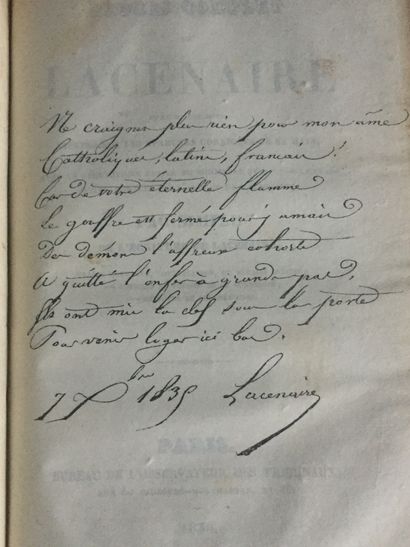 PROCÈS COMPLET
LACENAIRE
Ne craignez plus rien pour mon âme
Catholiques, latins, français !
Car de votre éternelle flamme
Le gouffre est fermé pour jamais
Des demons l'affreuse cohorte
A quitté l'enfer à grands pas,
Ils ont mis la clef sous la porte
Pour venir loger ici bas.
7 Xbre 1835 Lacenaire
PARIS.
BUREAU DE L'OBSERVATEUR DES TRIBUNAUX